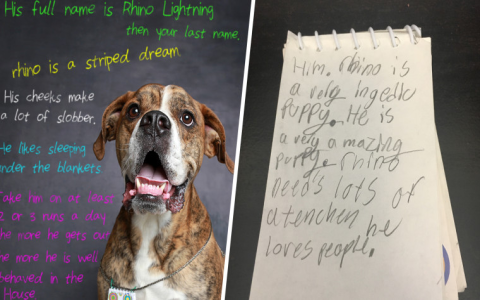 His full name is Rhino Lightning
then your last name.
rhino is a striped dream
His cheeks make
a lot of slobber.
He likes sleeping
under the blankets
Take him on at least
2 or 3 runs a day
the more he gets out
the more he is well
behaved in the
House
Him. rhino is
a very ingedlc
puppy. He is
a very a mazing
puppy. rhino
needs lots of
atenchen he
loves people.